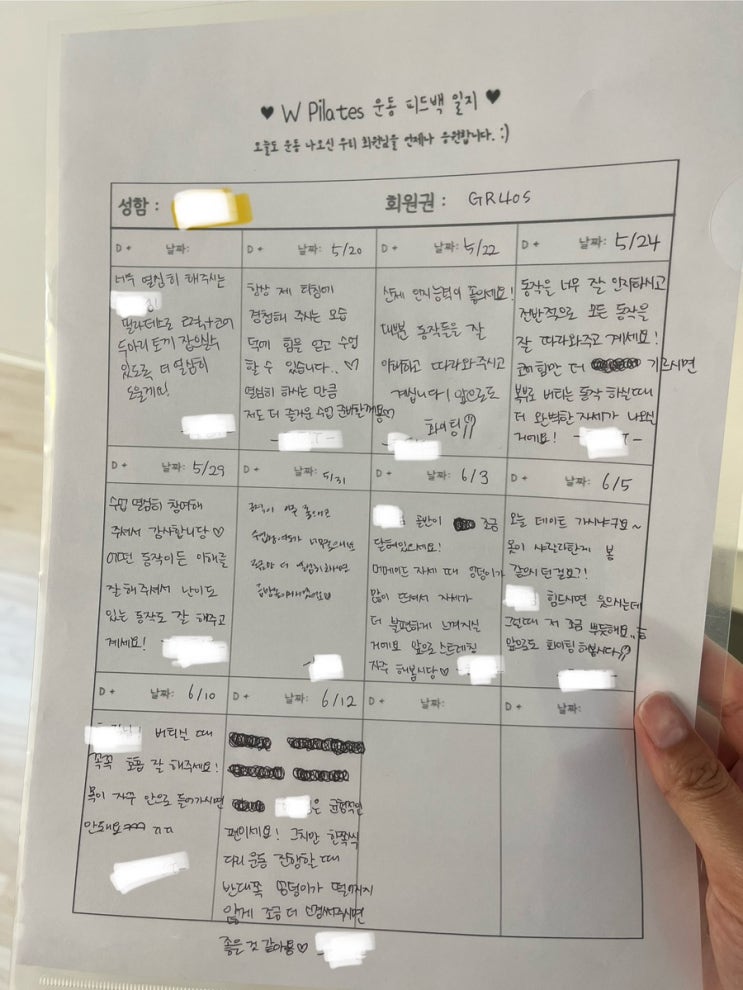 ♥ W Pilates 운동 피드백 일지 ♥
오늘도 운동 나오신 우리 회원님을 언제나 응원합니다. :)
성함 :
회원권 : GR40S
D + 날짜:
너무 열심히 해주시는
필라테스로 근력+코어
두마리 토끼 잡으실수
있도록 더 열심히
도울게요!
D + 날짜: 5/20
항상 제 타임에
경청해 주시는 모습
덕에 힘을 얻고 수업
할 수 있습니다.. ♡
열심히 하시는 만큼
저도 더 즐거운 수업 준비할게용♡
D + 날짜: 5/22
신체 인지능력이 좋으세요!
대부분 동작들을 잘
이해하고 따라와주시고
계십니다! 앞으로도
화이팅!!
D + 날짜: 5/24
동작을 너무 잘 인지하시고
전반적으로 모든 동작을
잘 따라와주고 계세요!
코어힘만 더 기르시면
복부로 버티는 동작 하실때
더 완벽한 자세가 나오실
거에요!
D + 날짜: 5/29
수업 열심히 참여해
주셔서 감사합니당 ♡
어떤 동작이든 이해를
잘 해주셔서 난이도
있는 동작도 잘 해주고
계세요!
D + 날짜: 5/31
D + 날짜: 6/3
골반이 조금
닫혀있으세요!
머메이드 자세 때 엉덩이가
많이 떠서 자세가
더 불편하게 느껴지실
거에요 앞으로 스트레칭
자주 해봅시당♡
D + 날짜: 6/5
오늘 데이트 가시나구요~
옷이 샤랄라한게 봄
같으시던걸요?!
힘드시면 웃으시는데
그럴때 저 조금 뿌듯해요..
앞으로도 화이팅 해봅시다!!
D + 날짜: 6/10
버티실 때
꼭꼭 호흡 잘 해주세요!
목이 자꾸 안으로 들어가시면
안돼요
D + 날짜: 6/12
은 균형적인
편이세요! 그치만 한쪽씩
다리 운동 진행할 때
반대쪽 엉덩이가 떨어지지
않게 조금 더 신경써주시면
좋은 것 같아용♡
D + 날짜:
D + 날짜: